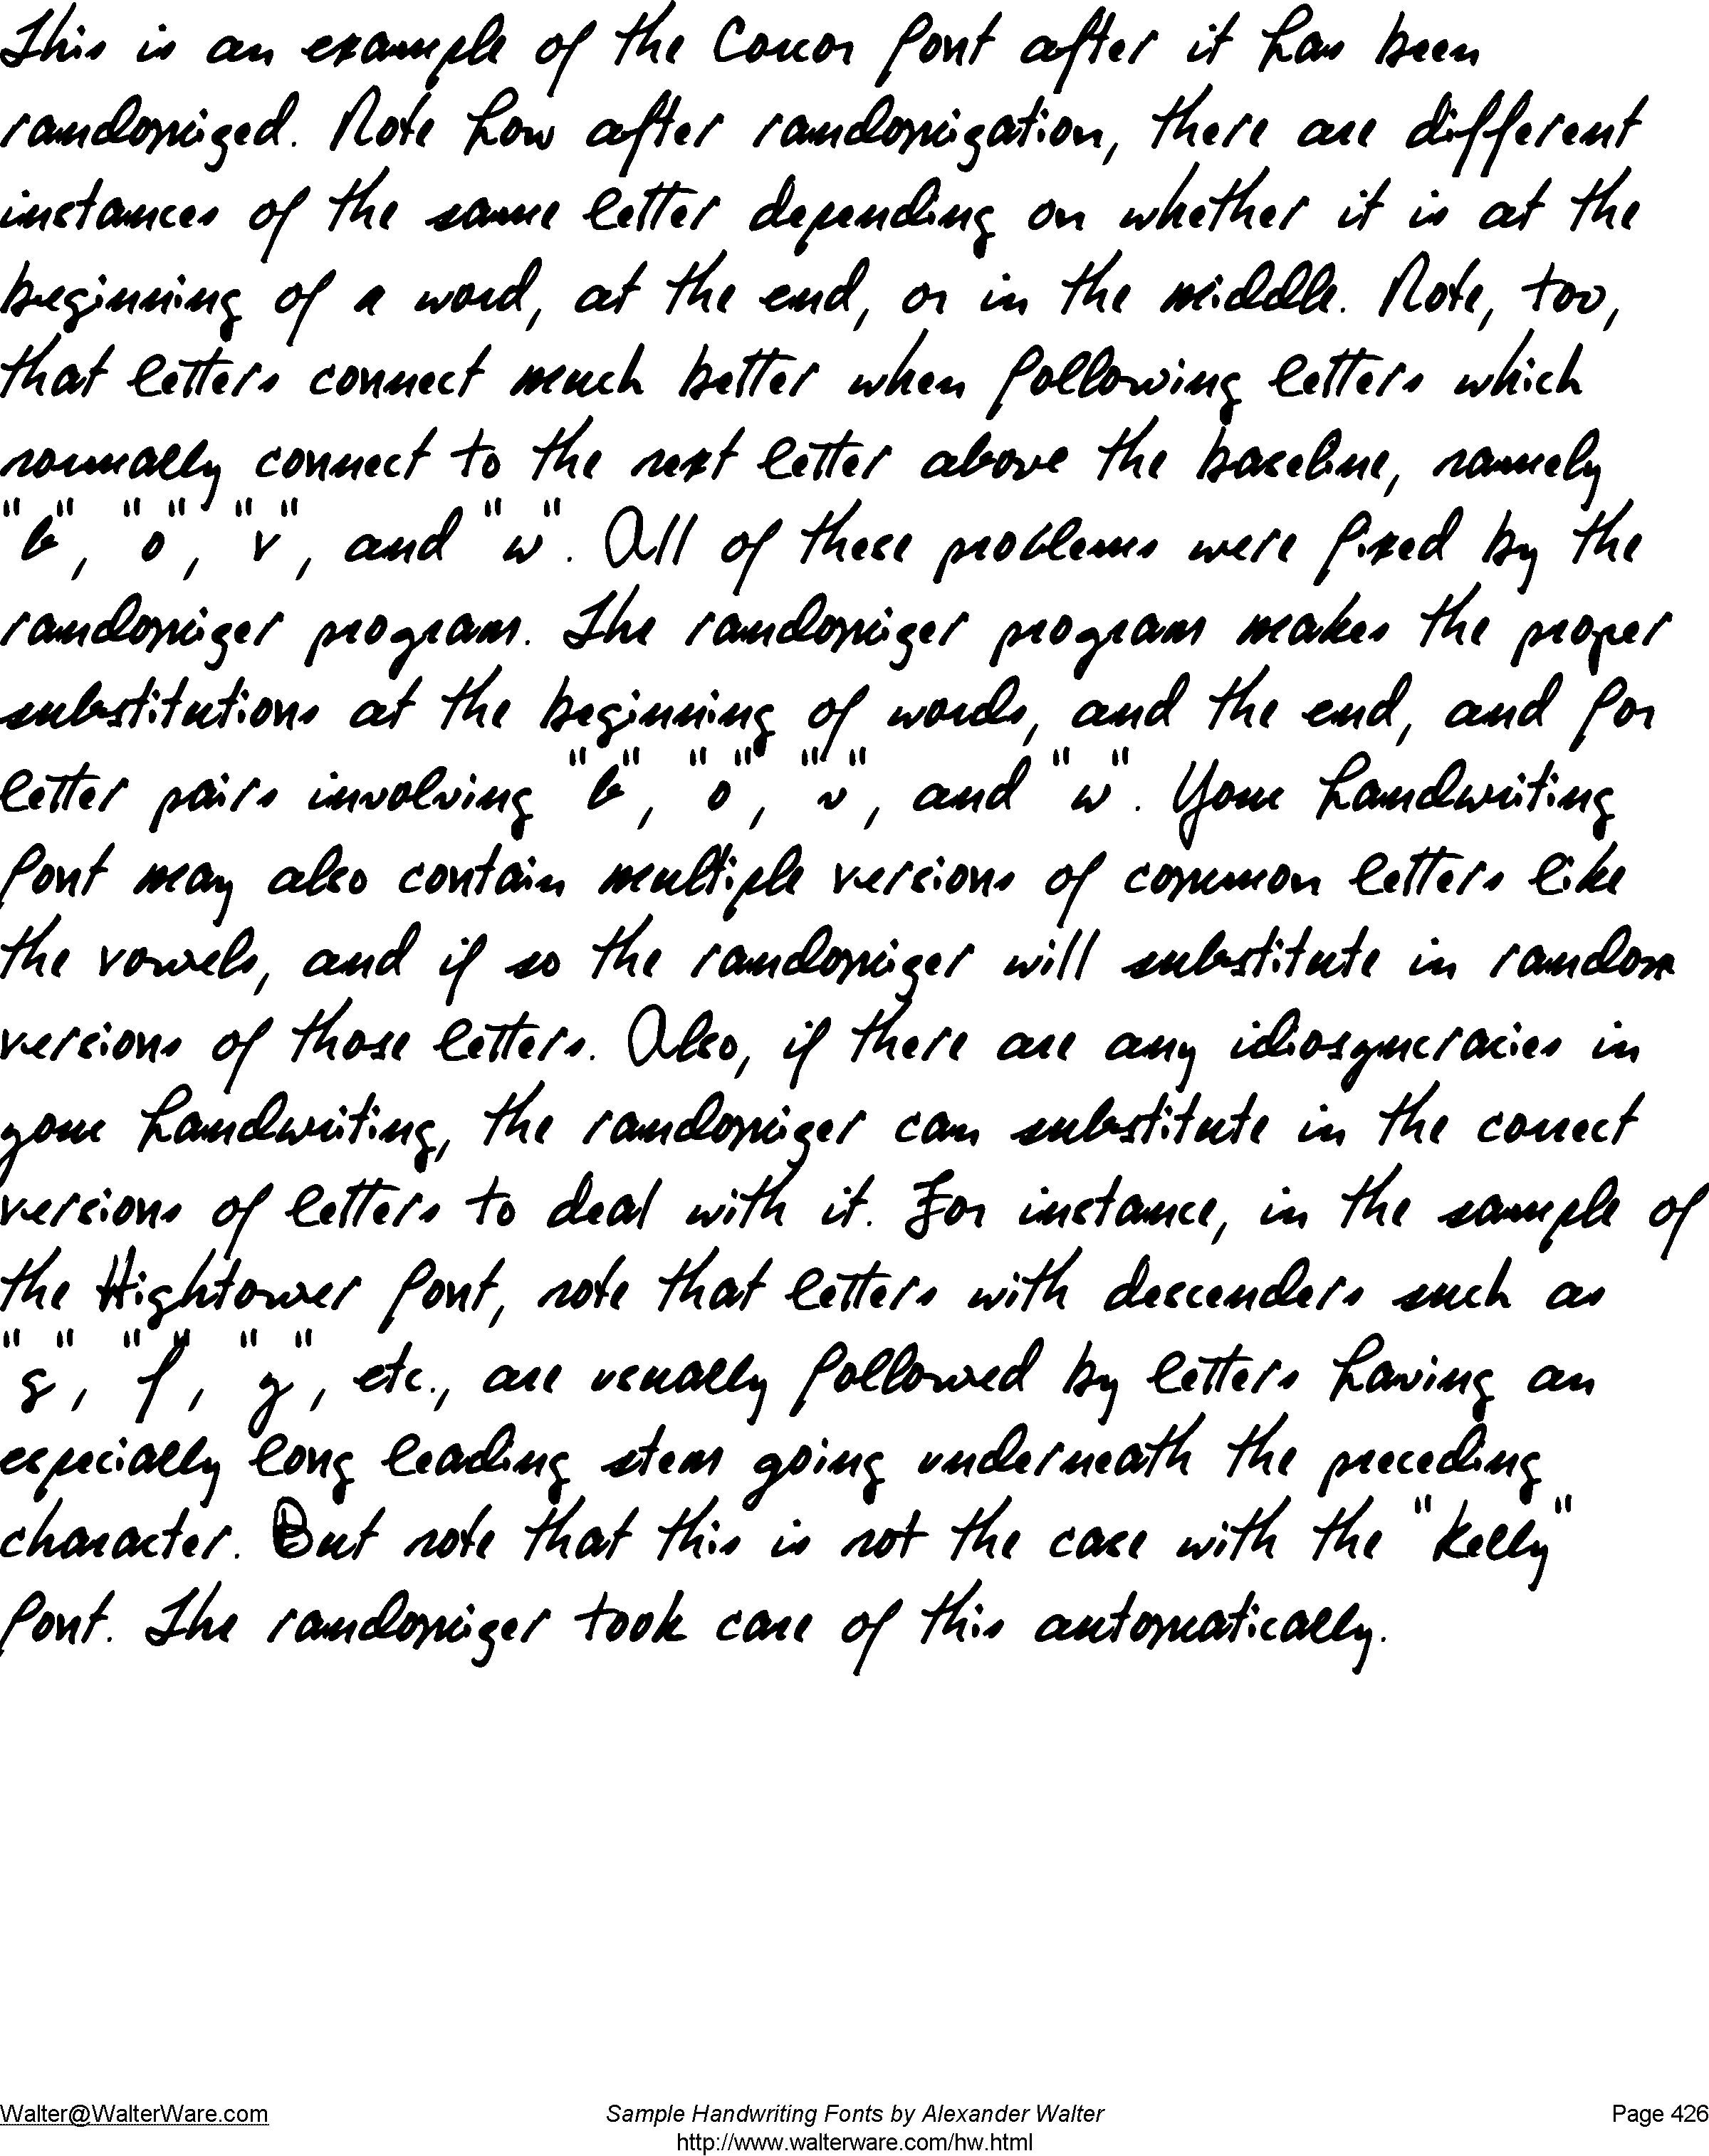 This is an example of the font after it has been
randomized. Note how after randomization, there are different
instances of the same letter depending on whether it is at the
beginning of a word, at the end, or in the middle. Note, too,
that letters connect much better when following letters which
normally connect to the next letter above the baseline, namely
"b", "o", "v", and "w". All of these problems were fixed by the
randomizer program. The randomizer program makes the proper
substitutions at the beginning of words, and the end, and for
letter pairs involving "b", "o", "v", and "w". Your handwriting
font may also contain multiple versions of common letters like
the vowels, and if so the randomizer will substitute in random
versions of those letters. Also, if there are any idiosyncracies in
your handwriting, the randomizer can substitute in the correct
versions of letters to deal with it. For instance, in the sample of
the Hightower font, note that letters with descenders such as
"g", "f", "y", etc., are usually followed by letters having an
especially long leading stem going underneath the preceding
character. But note that this is not the case with the "Kelly"
font. The randomizer took care of this automatically.
Walter@WalterWare.com Sample Handwriting Fonts by Alexander Walter Page 426
http://www.walterware.com/hw.html